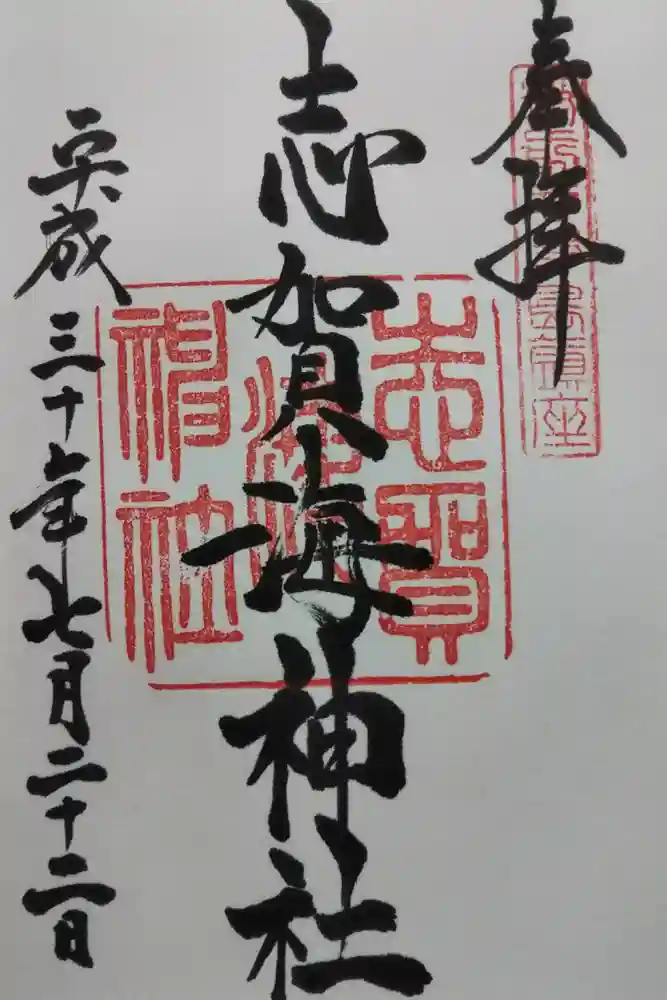 奉拝
志賀海神社
志賀海神社
平成三十年七月二十二日